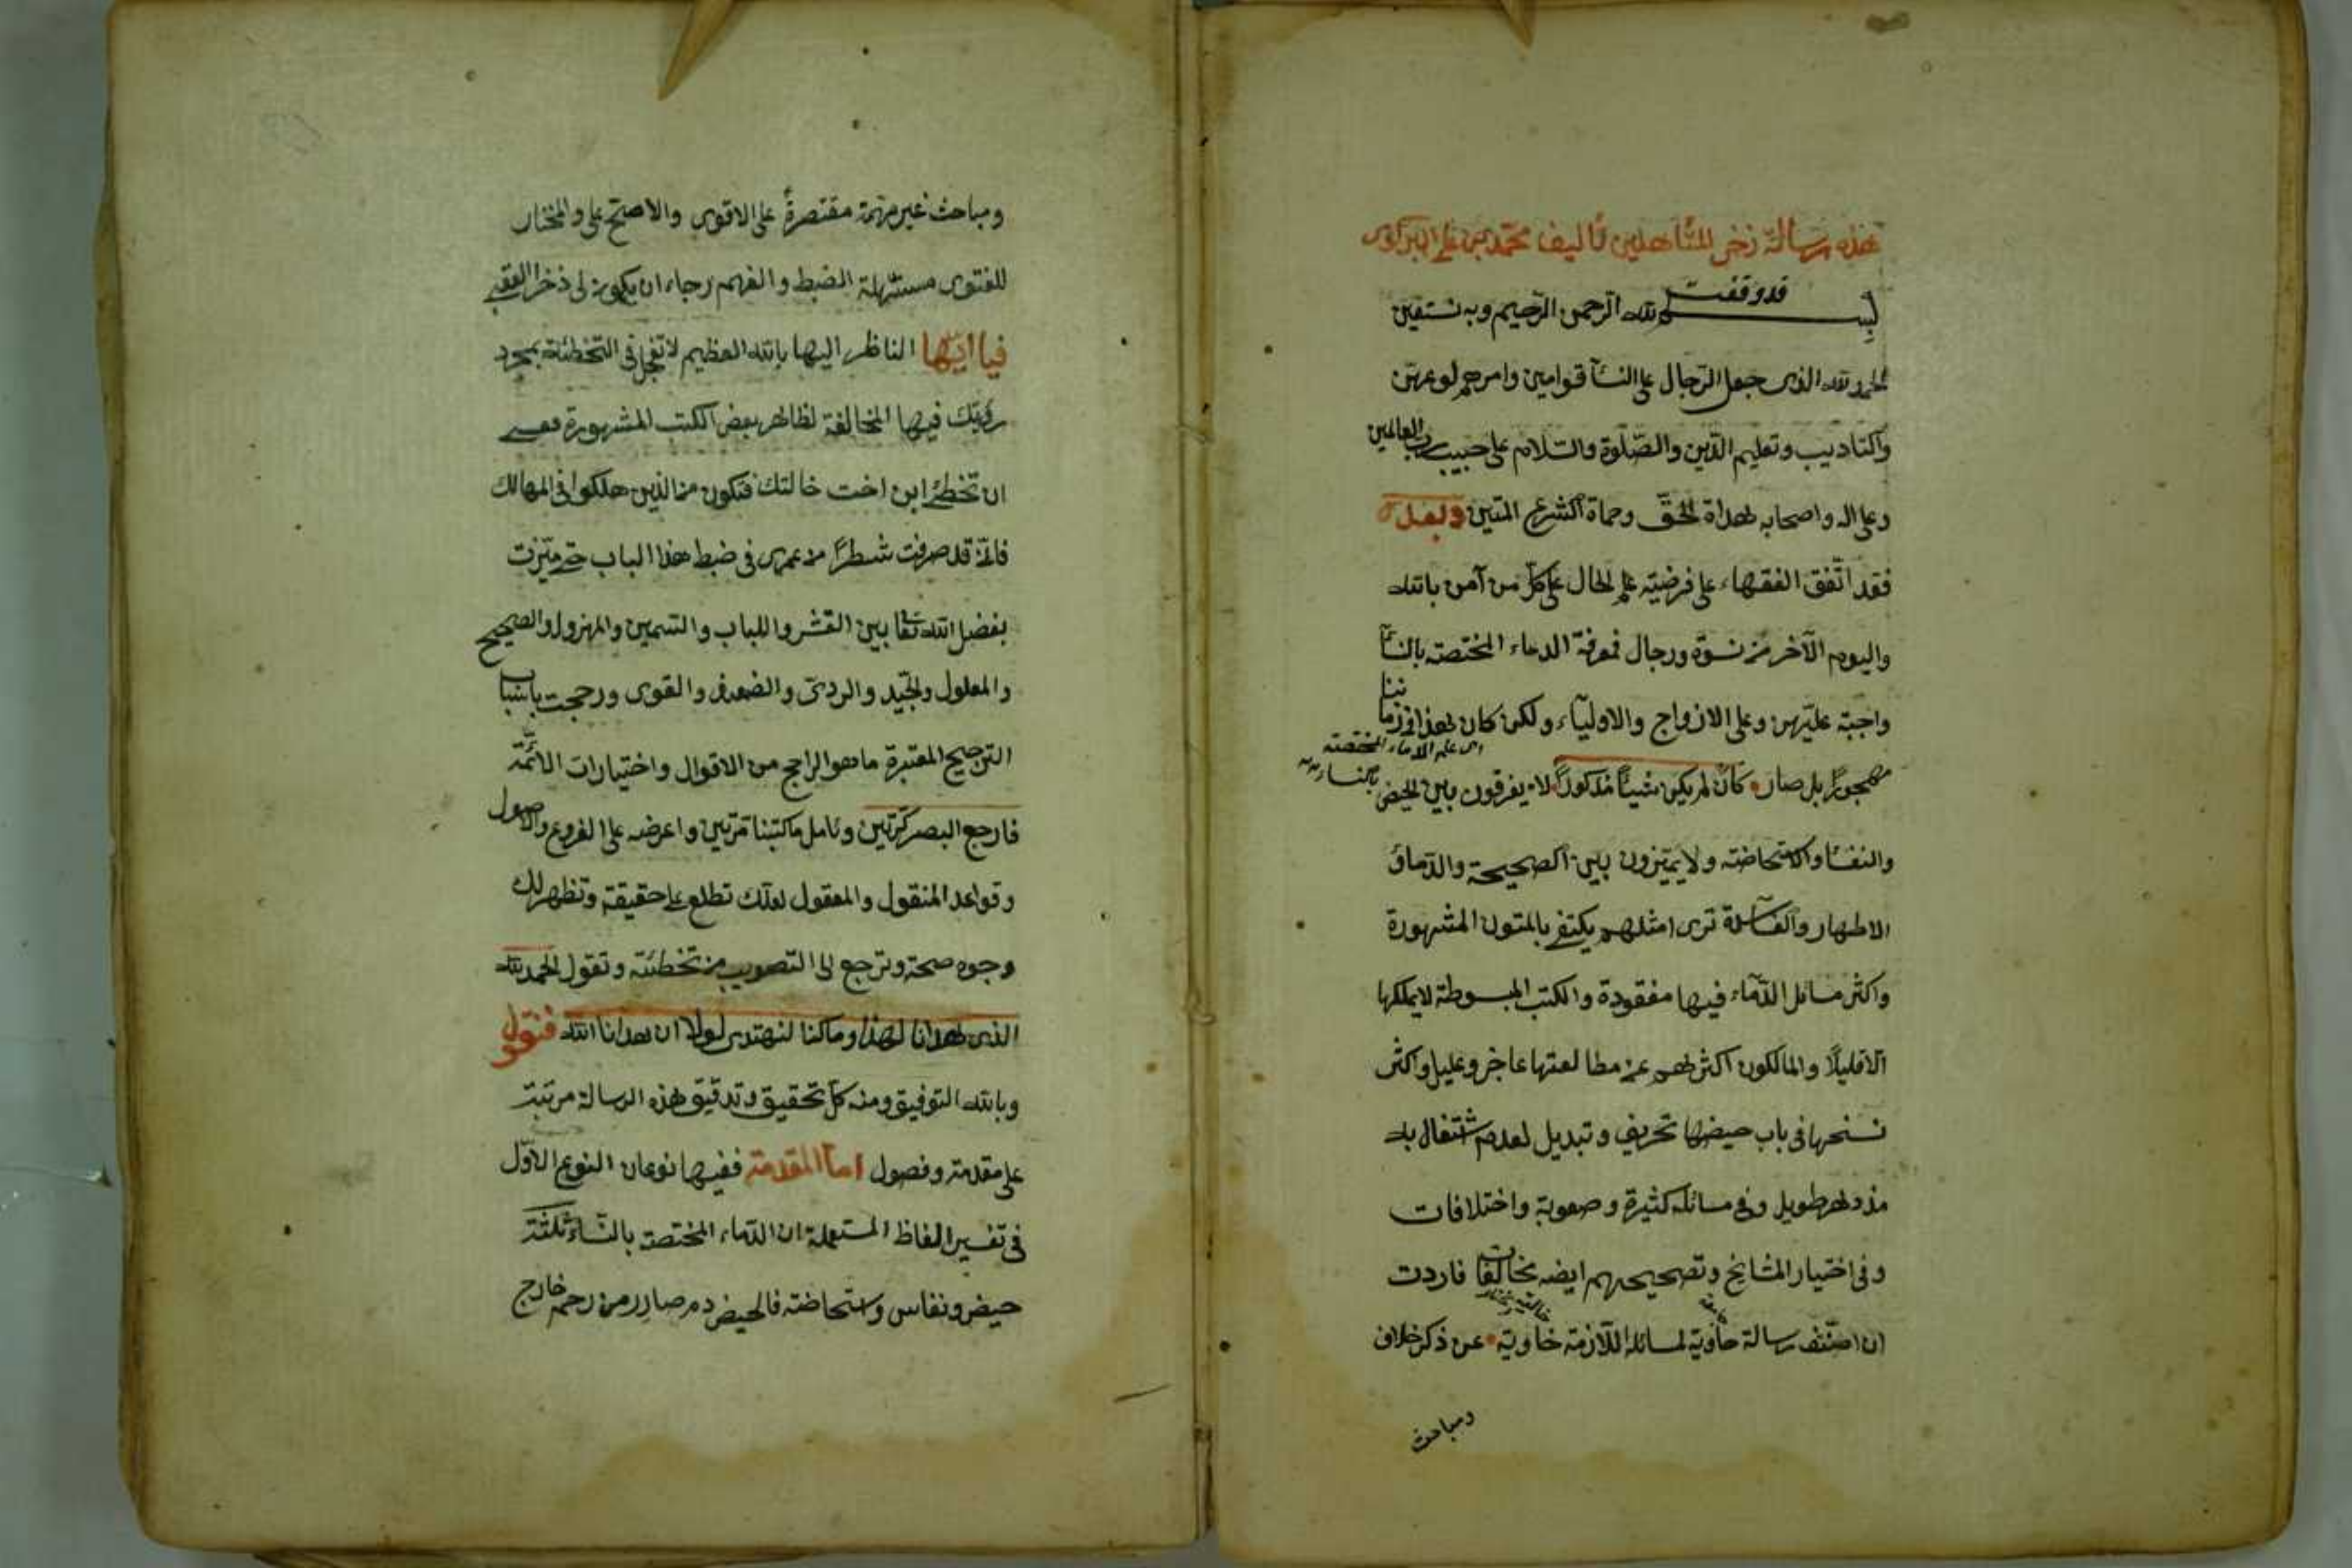 هذه رسالة ذخر المتأهلين تأليف محمد بن علي البركوى
قد وقفت
بسم الله الرحمن الرحيم وبه نستعين
الحمد لله الذى جعل الرجال على النسآ قوامين وامرهم لوعهن
والتاديب وتعليم الدين والصلوة والسلام على حبيب رب العالمين
وعلى اله واصحابه هداة الحق وحماة الشرع المتين وبعد
فقد اتفق الفقهاء على فرضية علم الحال على كل من آمن بالله
واليوم الآخر من نسوة ورجال فمعرفة الدماء المختصة بالنسآ
واجبة عليهن وعلى الازواج والاولياء ولكن كان هذا فى زماننا
اى علم الدماء المختصة بالنساء
مهجورا بل صار كان لم يكن شيئا مذكورا لا يفرقون بين الحيض
والنفسا والاستحاضة ولا يميزون بين الصحيحة والدما و
الاطهار والفاسدة ترى امثلهم يكتفى بالمتون المشهورة
واكثر مسائل الدماء فيها مفقودة والكتب المبسوطة لا يملكها
الا قليلا والمالكون اكثرهم عن مطالعتها عاجز وعليل واكثر
نسخها فى باب حيضها تحريف وتبديل لعدم اشتغال به
مذ دهر طويل وفى مسائله كثيرة وصعوبة واختلافات
وفى اختيار المشايخ وتصحيحهم ايضه مخالفات فاردت
ان اصنف رسالة حاوية لمسائله اللازمة خاوية عن ذكر خلاف
ومباحث
ومباحث غير مهمة مقتصرة على الاقوى والاصح على والمختار
للفتوى مسهلة الضبط والفهم رجاء ان يكون لى ذخرا العقبى
فيا ايها الناظر اليها بالله العظيم لا تعجل فى التخطئة بمجرد
رؤيتك فيها المخالفة لظاهر بعض الكتب المشهورة فعسى
ان تخطئ ابن اخت خالتك فتكون من الذين هلكوا فى المهالك
فانى قد صرفت شطرا من عمرى فى ضبط هذا الباب حتى ميزت
بفضل الله تعا بين القشر واللباب والسمين والمهزول والصحيح
والمعلول والجيد والردئ والضعيف والقوى ورجحت باسباب
الترجيح المعتبرة ما هو الراجح من الاقوال واختيارات الائمة
فارجع البصر كرتين وتامل ما كتبنا مرتين واعرضه على الفروع والاصول
وقواعد المنقول والمعقول لعلك تطلع على حقيقة وتظهر لك
وجوه صحة وترجع الى التصويب من تخطئته وتقول الحمد لله
الذى هدانا لهذا وما كنا لنهتدى لولا ان هدانا الله فنقول
وبالله التوفيق ومنه كل تحقيق وتدقيق هذه الرسالة مرتبة
على مقدمة وفصول اما المقدمة ففيها نوعان النوع الاول
فى تفسير الفاظ المستعملة ان الدماء المختصة بالنساء ثلثة
حيض ونفاس واستحاضة فالحيض دم صادر من رحم خارج